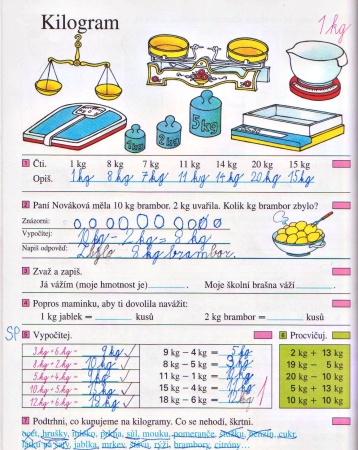 Kilogram
1 kg
1 kg 2 kg 5 kg
1 Čti. 1 kg 8 kg 7 kg 11 kg 14 kg 20 kg 15 kg
Opiš. 1 kg 8 kg 7 kg 11 kg 14 kg 20 kg 15 kg
2 Paní Nováková měla 10 kg brambor. 2 kg uvařila. Kolik kg brambor zbylo?
Znázorni:
Vypočítej: 10 kg - 2 kg = 8 kg
Napiš odpověď: Zbylo 8 kg brambor.
3 Zvaž a zapiš.
Já vážím (moje hmotnost je) . Moje školní brašna váží .
4 Popros maminku, aby ti dovolila navážit:
1 kg jablek = kusů 2 kg brambor = kusů
SP 5 Vypočítej. 6 Procvičuj.
3 kg + 6 kg = 9 kg 9 kg – 4 kg = 5 kg 2 kg + 13 kg
8 kg + 2 kg = 10 kg 8 kg – 5 kg = 3 kg 19 kg – 5 kg
5 kg + 4 kg = 9 kg 11 kg – 1 kg = 20 kg – 10 kg
15 kg – 4 kg = 5 kg + 13 kg
12 kg + 18 kg – 6 kg = 10 kg + 10 kg
7 Podtrhni, co kupujeme na kilogramy. Co se nehodí, škrtni.
ocet, hrušky, mléko, sůl, mouku, pomeranče, benzin, cukr,
jablka, mrkev, rýži, brambory, citróny…